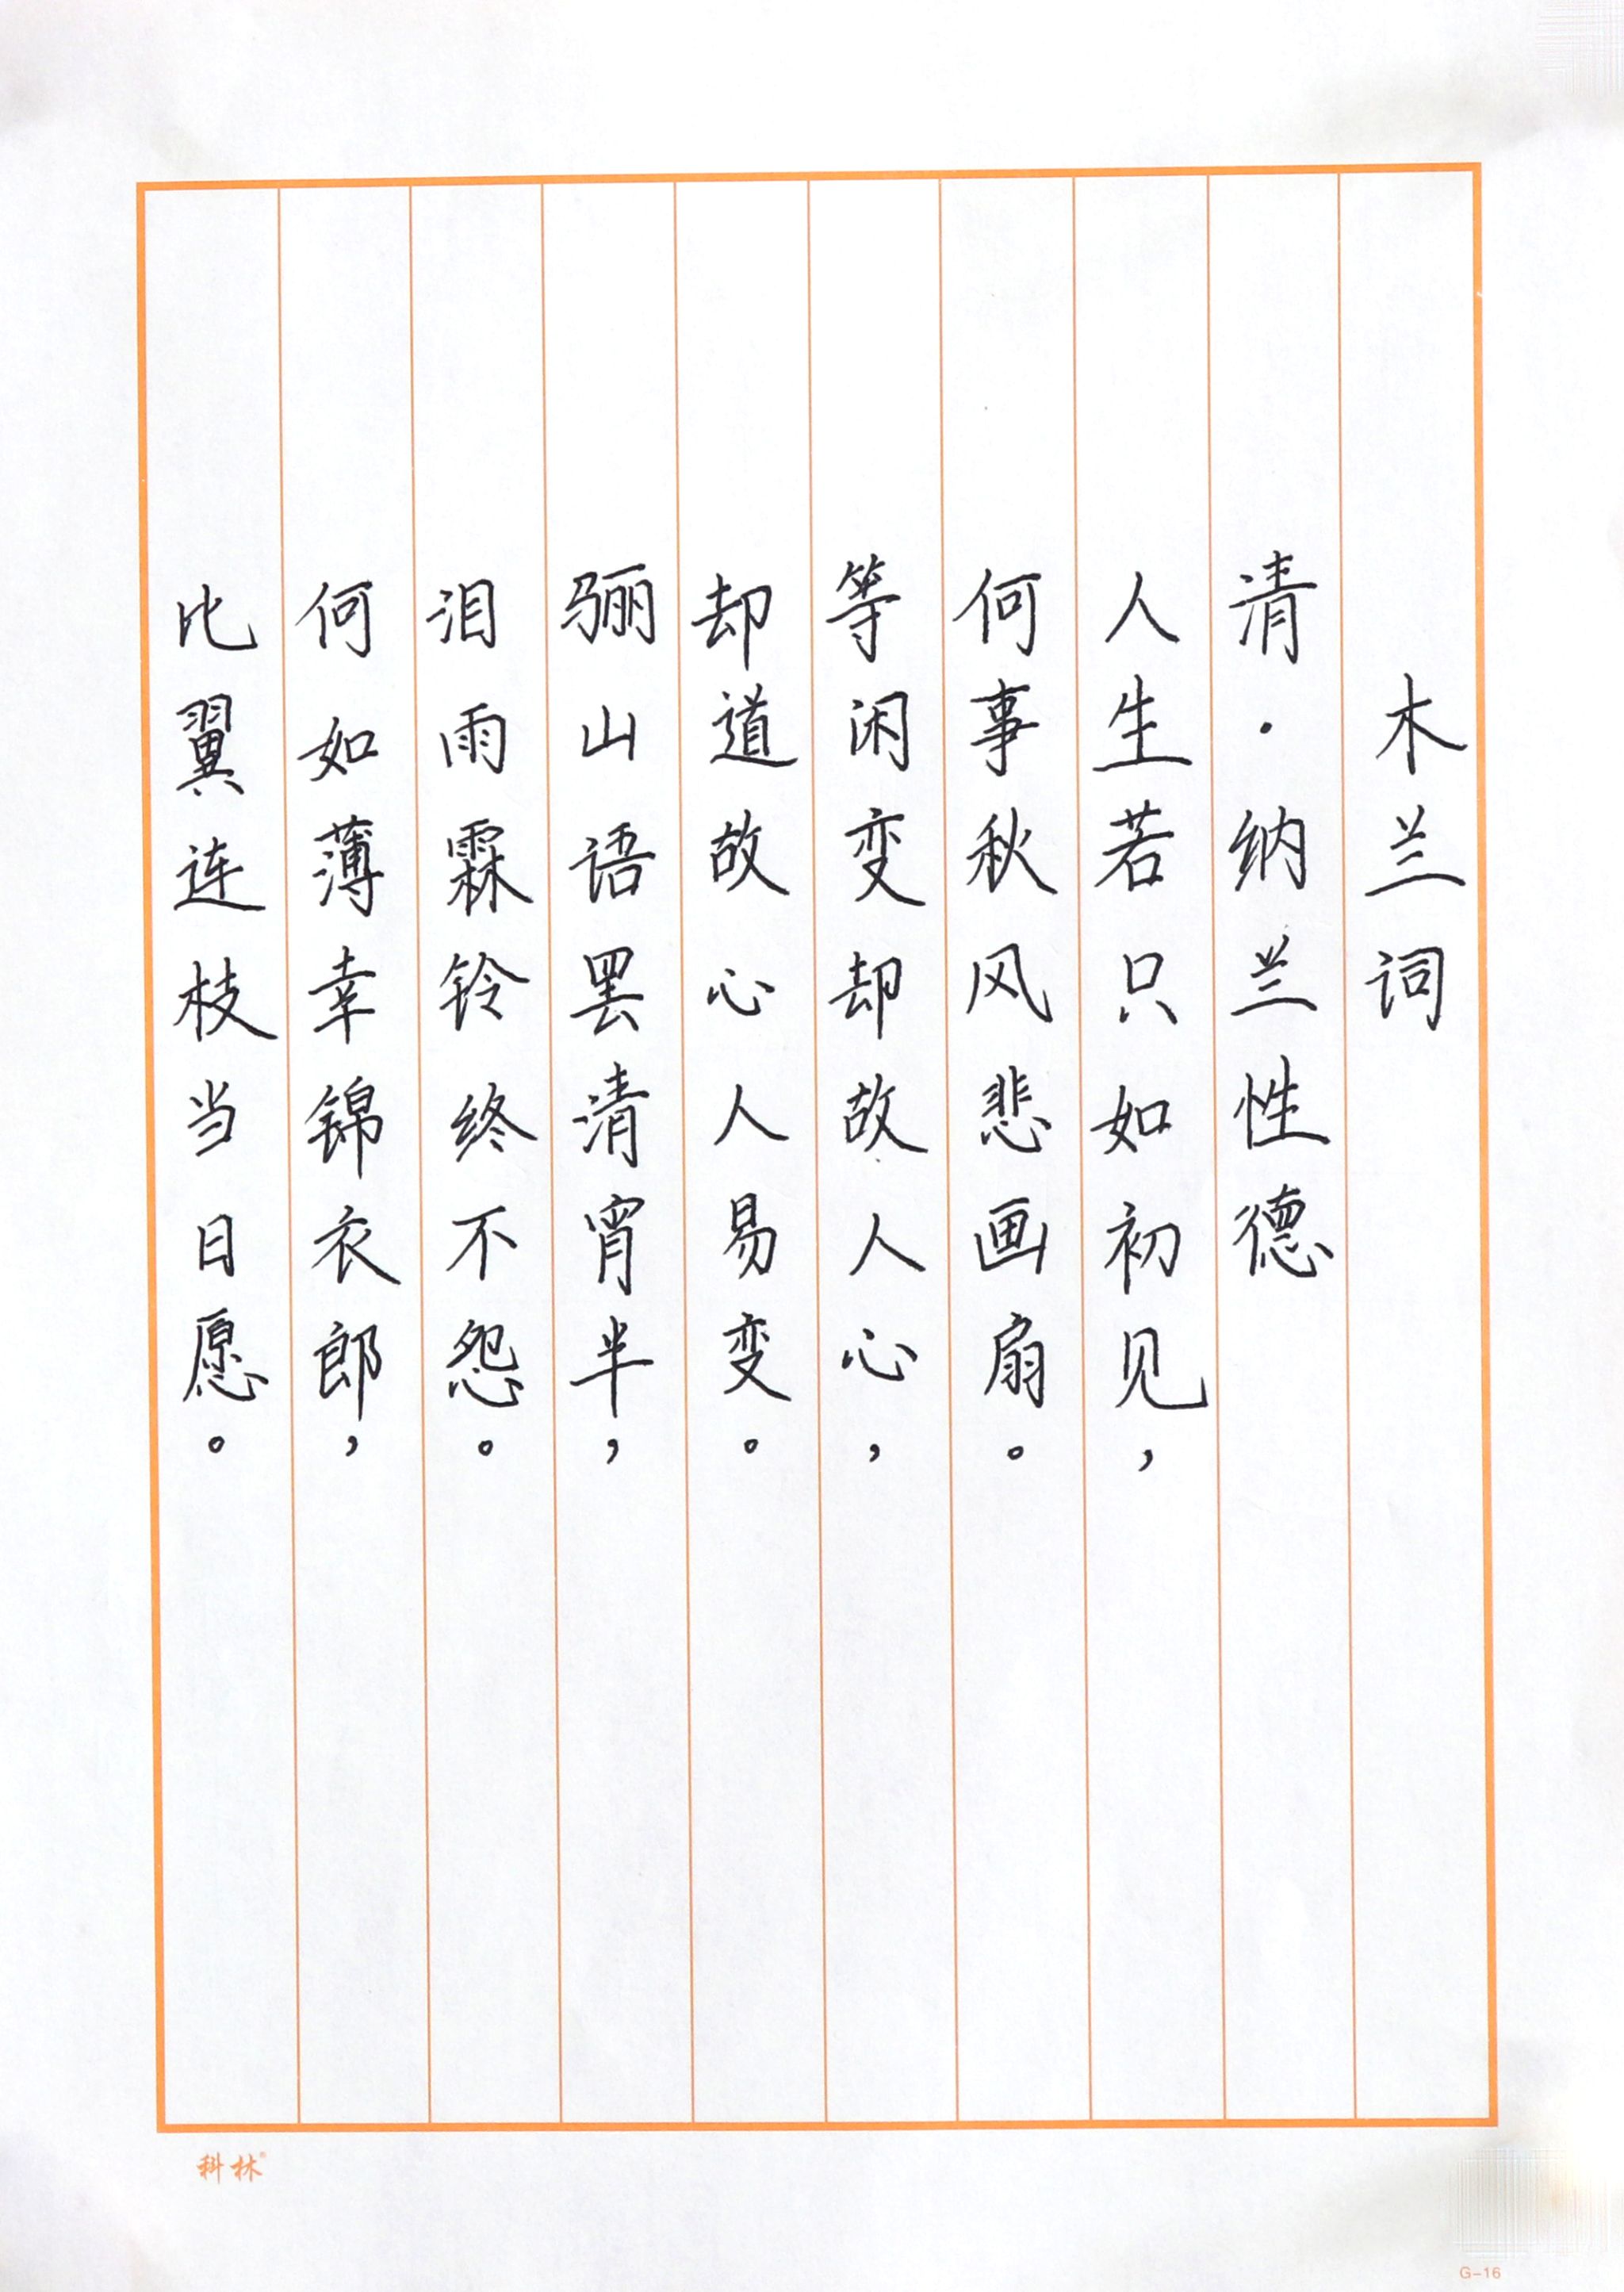 木兰词
清·纳兰性德
人生若只如初见，
何事秋风悲画扇。
等闲变却故人心，
却道故心人易变。
骊山语罢清宵半，
泪雨霖铃终不怨。
何如薄幸锦衣郎，
比翼连枝当日愿。
科林®
G-16